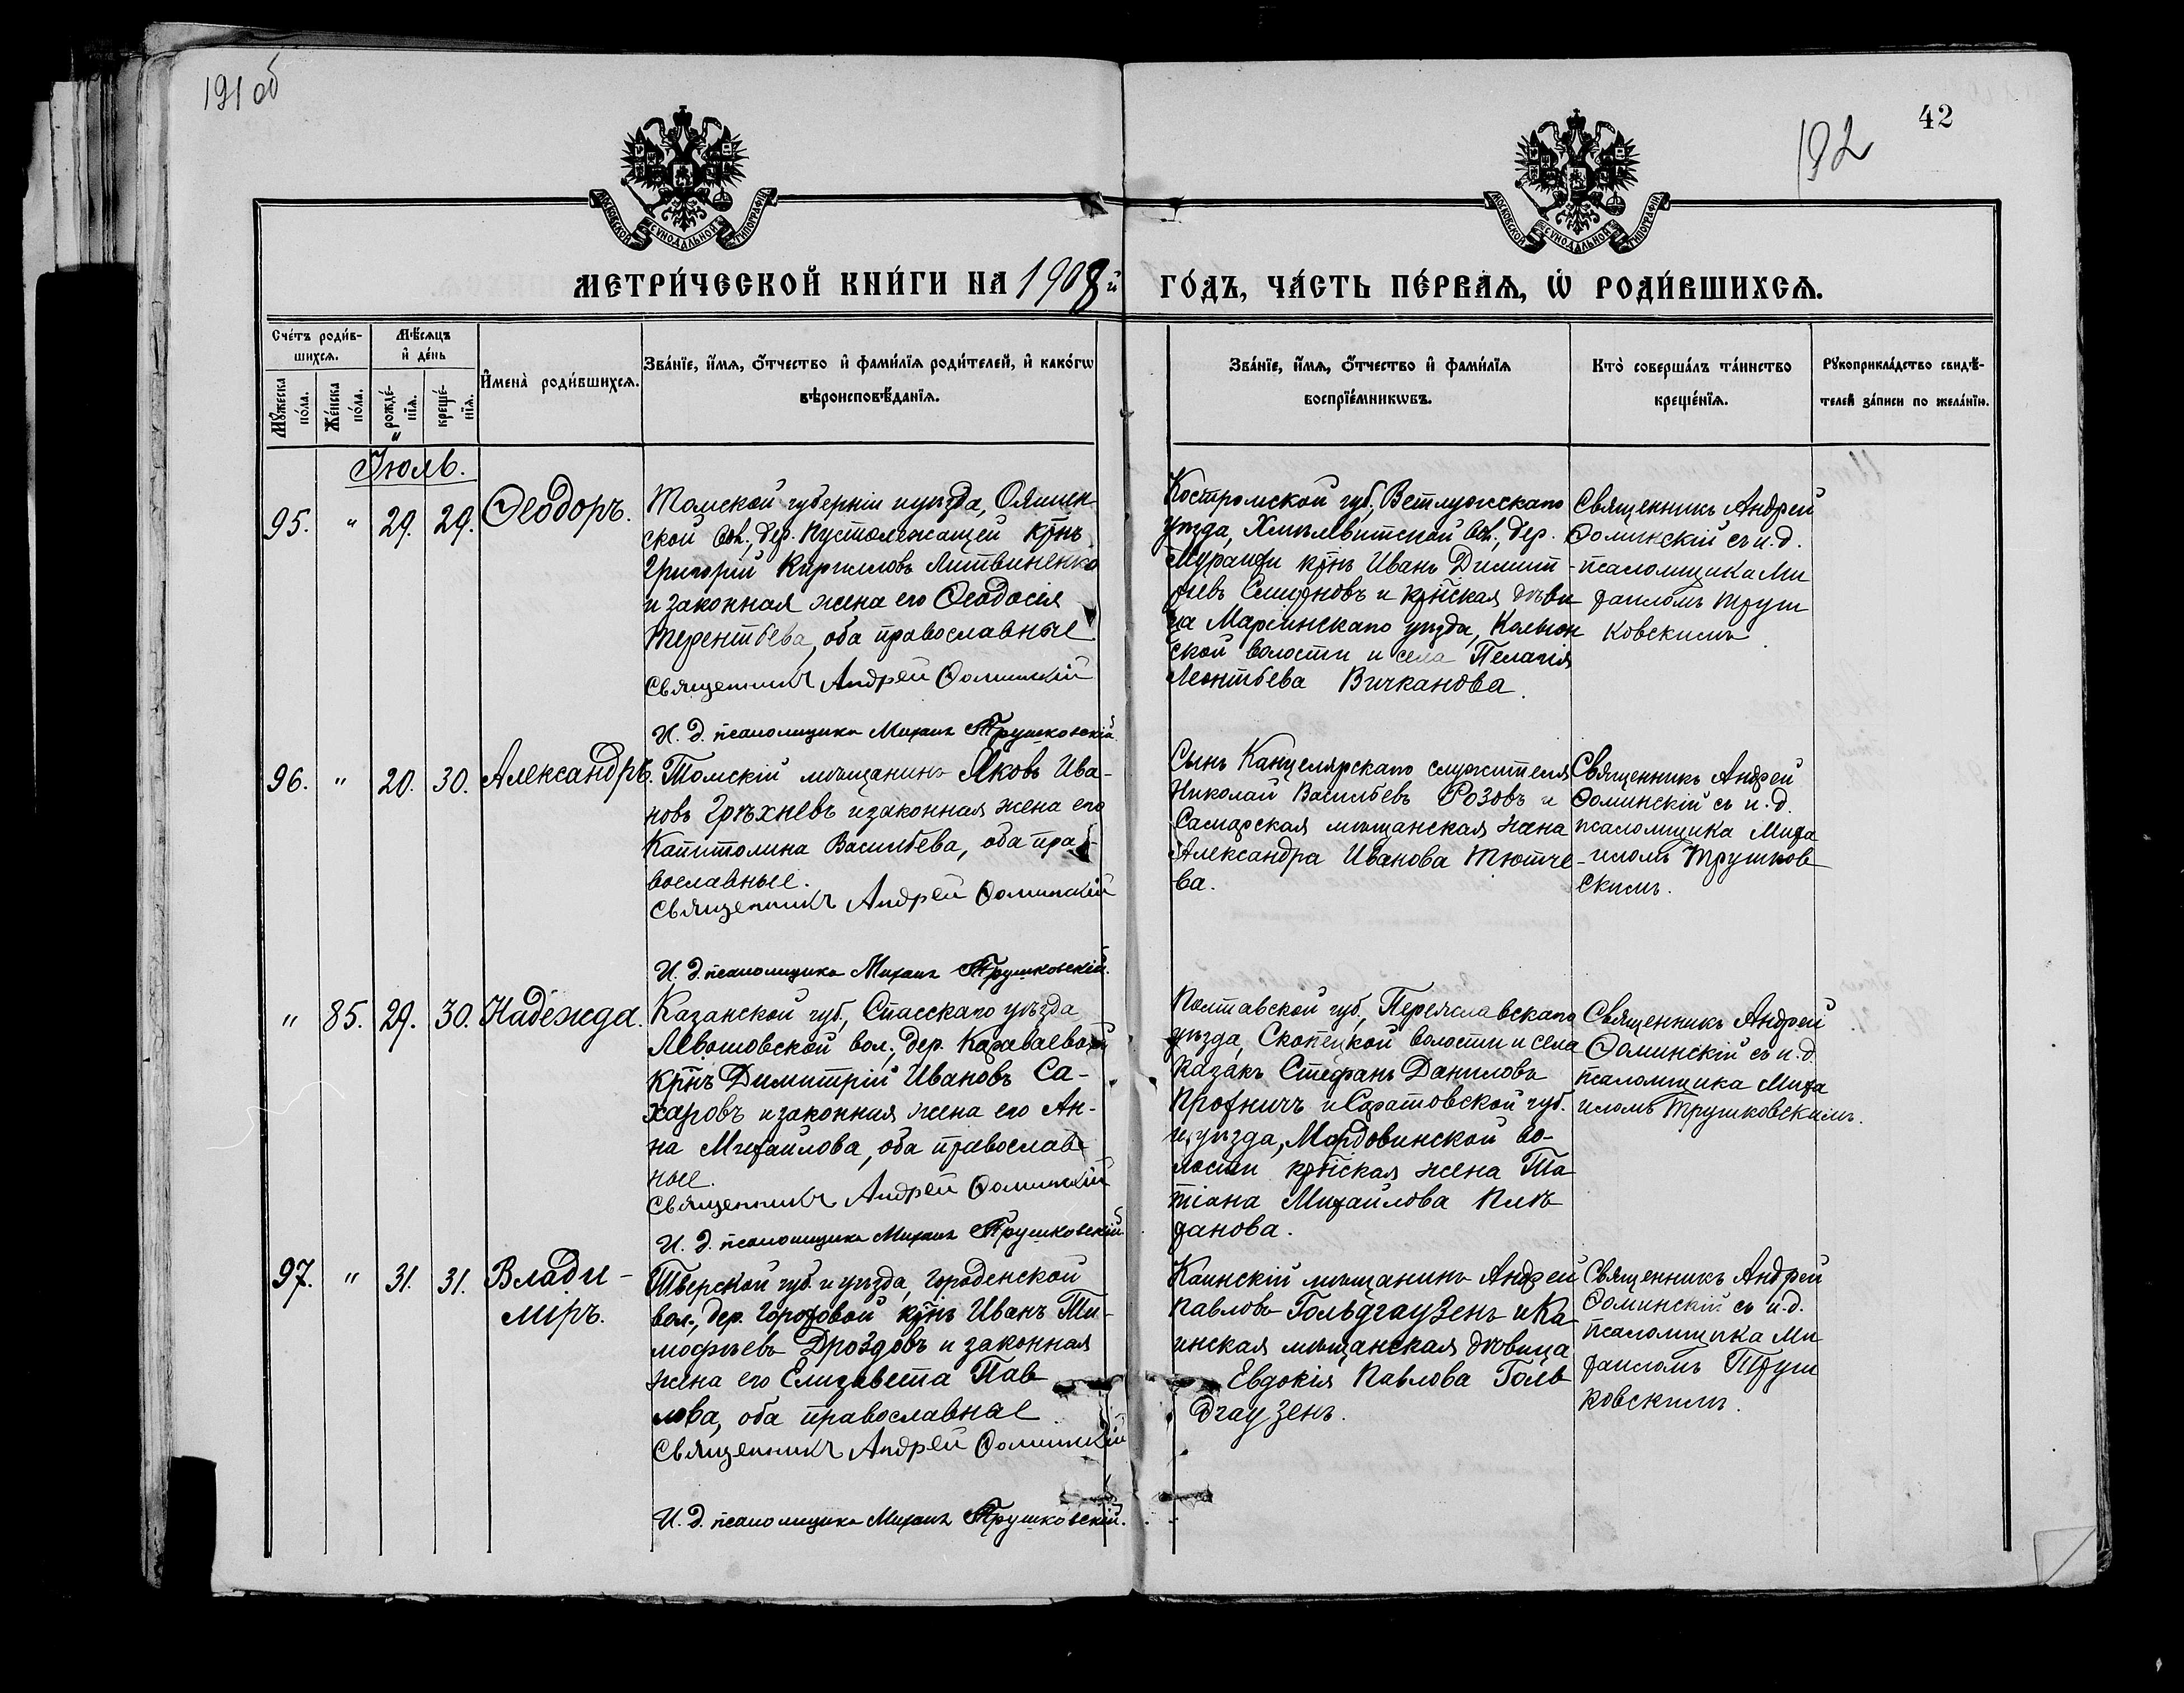 191 об
42
192
МОСКОВСКОЙ СѴНОДАЛЬНОЙ ТИПОГРАФІИ
МОСКОВСКОЙ СѴНОДАЛЬНОЙ ТИПОГРАФІИ
МЕТРИ́ЧЕСКОЙ КНИ́ГИ НА 1908й ГО́ДЪ, ЧА́СТЬ ПЕ́РВАѦ, Ѡ҆ РОДИ́ВШИХСѦ.
Сче́тъ роди́в-
шихсѧ.
Мꙋ́жеска
по́ла.
Же́нска
по́ла.
Мѣ́сѧцъ
и҆ де́нь
рожде́-
нїѧ.
креще́-
нїѧ.
И҆мена̀ роди́вшихсѧ.
Зва́нїе, и҆́мѧ, ѻ҆́тчество и҆ фами́лїѧ роди́телей, и҆ како́гѡ
вѣроисповѣ́данїѧ.
Зва́нїе, и҆́мѧ, ѻ҆́тчество и҆ фами́лїѧ
воспрїе́мникѡвъ.
Кто̀ соверша́лъ та́инство
креще́нїѧ.
Рꙋкоприкла́дство свидѣ́-
телей за́писи по жела́нїю.
Іюль.
95. " 29. 29. Ѳеодоръ.
Томской губерніи и уѣзда, Ояшен-
ской вол., дер. Пустолежащей крнъ
Григорій Кирилловъ Литвиненко
и законная жена его Ѳеодосія
Терентьева, оба православные
Священникъ Андрей Ѳоминскій
И. д. псаломщика Михаилъ Трушковскій
Костромской губ., Ветлужскаго
уѣзда, Хмѣлевитской вол., дер.
крнъ Иванъ Димит-
ріевъ Смирновъ и крнская дѣви
ца Маріинскаго уѣзда, Колыон
ской волости и села Пелагія
Леонтьева Вичканова.
Священникъ Андрей
Ѳоминскій съ и. д.
псаломщика Ми
хаиломъ Труш
ковскимъ.
96. " 20. 30. Александръ.
Томскій мѣщанинъ Яковъ Ива-
новъ Грѣхневъ и законная жена его
Капитолина Васильева, оба пра-
вославные.
Священникъ Андрей Ѳоминскій
И. д. псаломщика Михаилъ Трушковскій.
Сынъ Канцелярскаго служителя
Николай Васильевъ Розовъ и
Самарская мѣщанская жена
Александра Иванова Тютче-
ва.
Священникъ Андрей
Ѳоминскій съ и. д.
псаломщика Миха
иломъ Трушков
скимъ.
" 85. 29. 30. Надежда.
Казанской губ., Спасскаго уѣзда
Левашовской вол., дер. Караваевой
крнъ Димитрій Ивановъ Са-
харовъ и законная жена его Ан-
на Михайлова, оба православ
ные.
Священникъ Андрей Ѳоминскій
И. д. псаломщика Михаилъ Трушковскій
Полтавской губ., Переяславскаго
уѣзда, Скопецкой волости и села
казакъ Стефанъ Даниловъ
и Саратовской губ.
и уѣзда, Мордовинской во-
лости крнская жена Та
тіана Михайлова
Священникъ Андрей
Ѳоминскій съ и. д.
псаломщика Миха
иломъ Трушковскимъ.
97. " 31. 31. Влади-
міръ.
Тверской губ. и уѣзда, Городенской
вол., дер. Гороховой крнъ Иванъ Ти-
мофѣевъ Дроздовъ и законная
жена его Елизавета Пав
лова, оба православные.
Священникъ Андрей Ѳоминскій
И. д. псаломщика Михаилъ Трушковскій.
Каинскій мѣщанинъ Андрей
Павловъ Гольдгаузенъ и Ка-
инская мѣщанская дѣвица
Евдокія Павлова Голь
дгаузенъ.
Священникъ Андрей
Ѳоминскій съ и. д.
псаломщика Ми
хаиломъ Труш
ковскимъ.